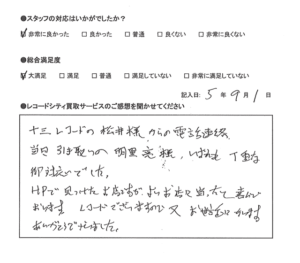 ●スタッフの対応はいかがでしたか？
☑ 非常に良かった □ 良かった □ 普通 □ 良くない □ 非常に良くない
●総合満足度
☑ 大満足 □ 満足 □ 普通 □ 満足していない □ 非常に満足していない
記入日: 5 年 9 月 1 日
●レコードシティ買取サービスのご感想を聞かせてください
十三レコードの 松井様 からの電話連絡
当日 引き取りの 様、いずれも 丁重な
御対応でした。
HPで見つけたお店ですが、よいお店に当たって 喜んで
おります レコードでございますので 又 お世話に
ありがとうございました。